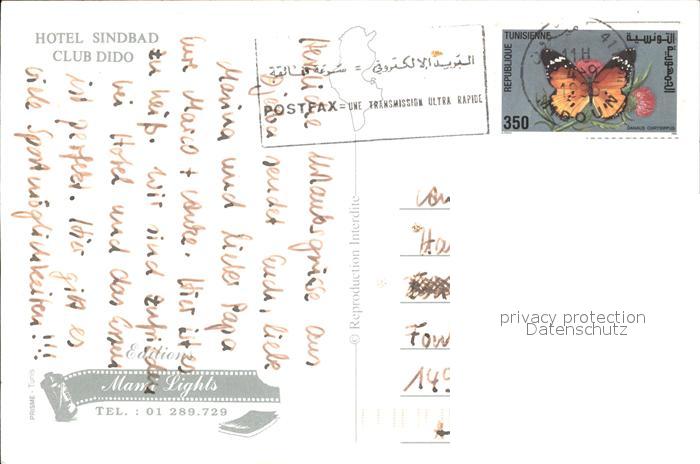 HOTEL SINDBAD
CLUB DIDO
البريد الإلكتروني = سرعة فائقة
POSTFAX = UNE TRANSMISSION ULTRA RAPIDE
REPUBLIQUE TUNISIENNE
الجمهورية التونسية
350
DANAUS CHRYSIPPUS
11H
Herzliche Urlaubsgrüsse aus
Djerba sendet Euch, liebe
Mama und lieber Papa
eure Marco + . Hier ist es
zu heiß. Wir sind zufrieden
im Hotel und das Essen
ist perfekt. Hier gibt es
viele Sportmöglichkeiten!!!
© Reproduction Interdite
Ha
149
privacy protection
Datenschutz
Editions
Mami Lights
TEL. : 01 289.729
PRISME - Tunis